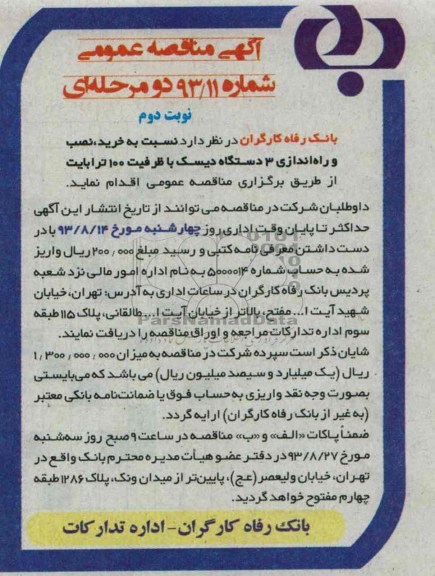 آگهی مناقصه عمومی
شماره ۹۳/۱۱ دو مرحله‌ای
نوبت دوم
بانک رفاه کارگران در نظر دارد نسبت به خرید، نصب
و راه‌اندازی ۳ دستگاه دیسک با ظرفیت ۱۰۰ ترابایت
از طریق برگزاری مناقصه عمومی اقدام نماید.
داوطلبان شرکت در مناقصه می‌توانند از تاریخ انتشار این آگهی
حداکثر تا پایان وقت اداری روز چهارشنبه مورخ ۹۳/۸/۱۴ با در
دست داشتن معرفی نامه کتبی و رسید مبلغ ۲۰۰٬۰۰۰ ریال واریز
شده به حساب شماره ۵۰۰۰۰۱۴ به نام اداره امور مالی نزد شعبه
پردیس بانک رفاه کارگران در ساعات اداری به آدرس: تهران، خیابان
شهید آیت ا... مفتح، بالاتر از خیابان آیت ا... طالقانی، پلاک ۱۱۵ طبقه
سوم اداره تدارکات مراجعه و اوراق مناقصه را دریافت نمایند.
شایان ذکر است سپرده شرکت در مناقصه به میزان ۱٫۳۰۰٫۰۰۰٫۰۰۰
ریال (یک میلیارد و سیصد میلیون ریال) می باشد که می‌بایستی
بصورت وجه نقد واریزی به حساب فوق یا ضمانت‌نامه بانکی معتبر
(به غیر از بانک رفاه کارگران) ارایه گردد.
ضمناً پاکات «الف» و «ب» مناقصه در ساعت ۹ صبح روز سه‌شنبه
مورخ ۹۳/۸/۲۷ در دفتر عضو هیأت مدیره محترم بانک واقع در
تهران، خیابان ولیعصر (عج)، پایین‌تر از میدان ونک، پلاک ۱۲۸۶ طبقه
چهارم مفتوح خواهد گردید.
بانک رفاه کارگران - اداره تدارکات
ParsNamadData